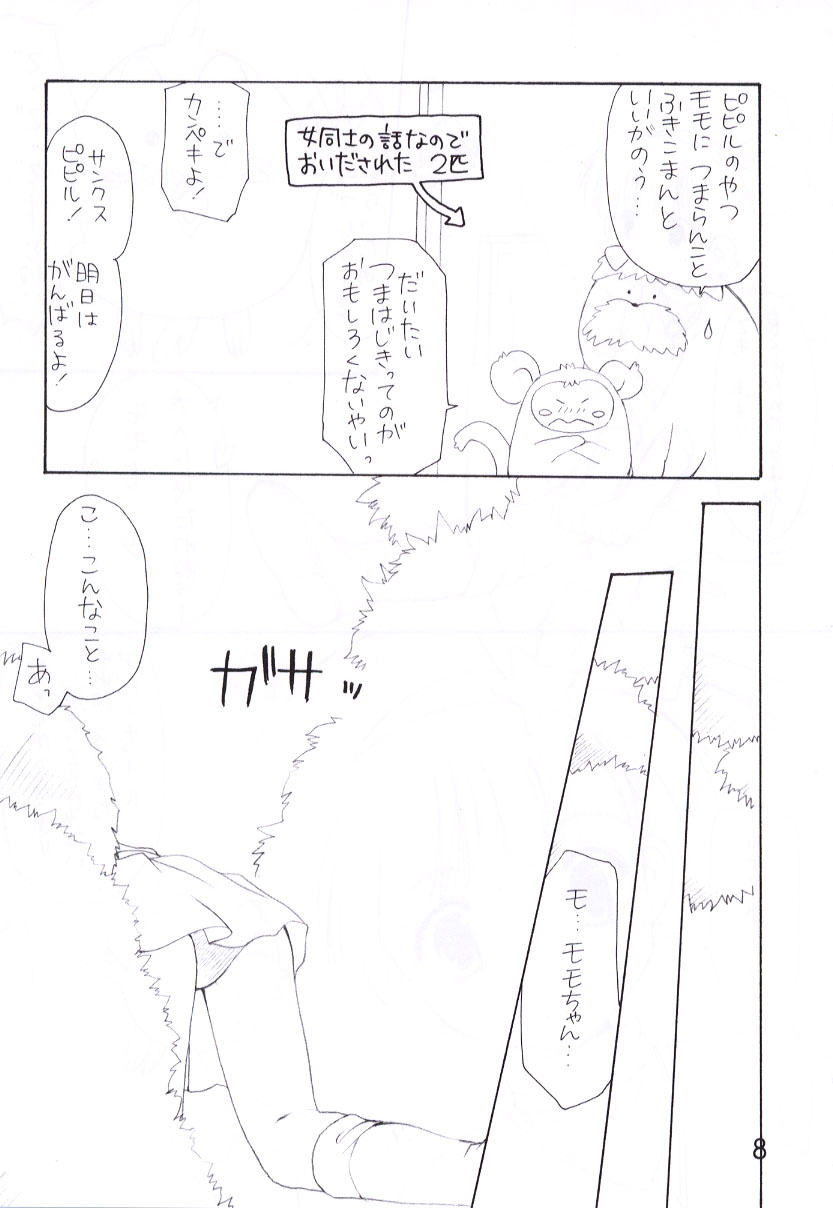 ピピルのやつ
モモにつまらんこと
ふきこまんと
いいがのう…
女同士の話なので
おいだされた 2匹
だいたい
つまはじきってのが
おもしろくないやいっ
……で
カンペキよ!
サンクス
ピピル!
明日は
がんばるよ!
モ…モモちゃん…
ガサッ
こ…こんなこと…
あっ
8